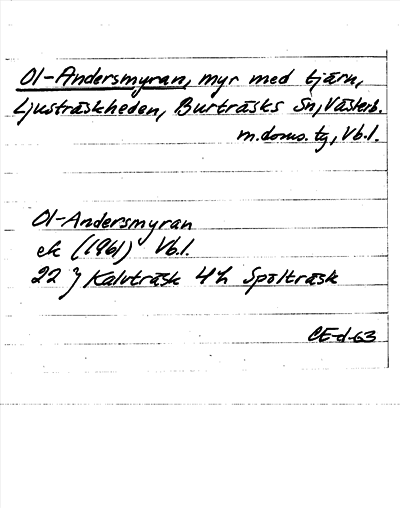 Ol-Andersmyran, myr med tjärn,
Ljusträskheden, Burträsks Sn, Västerb.
m.doms.tg, Vb.l.
Ol-Andersmyran
ek (1961) Vb.l.
22 J Kalvträsk 4h Spölträsk
CE-d-63